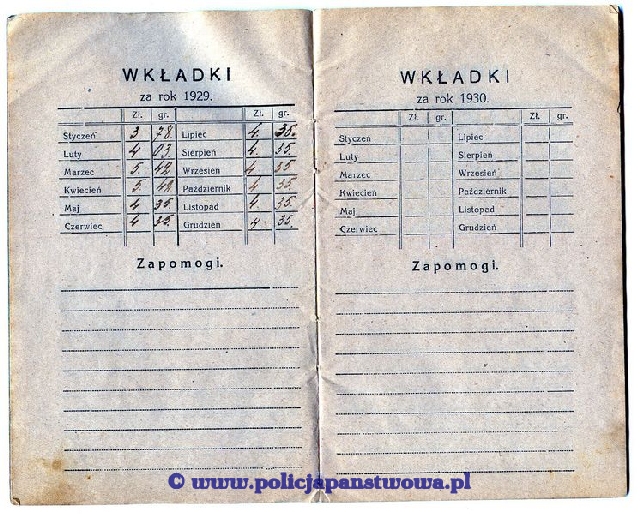 WKŁADKI
za rok 1929.
Zł. gr. Zł. gr.
Styczeń 3 28 Lipiec 4. 35.
Luty 4 03. Sierpień 4 35.
Marzec 5. 42 Wrzesień 4 35
Kwiecień 5 48 Październik 4 35.
Maj 4 35 Listopad 4 35.
Czerwiec 4 35. Grudzień 4 35.
Zapomogi.
WKŁADKI
za rok 1930.
Zł. gr. Zł. gr.
Styczeń Lipiec
Luty Sierpień
Marzec Wrzesień
Kwiecień Październik
Maj Listopad
Czerwiec Grudzień
Zapomogi.
© www.policjapanstwowa.pl